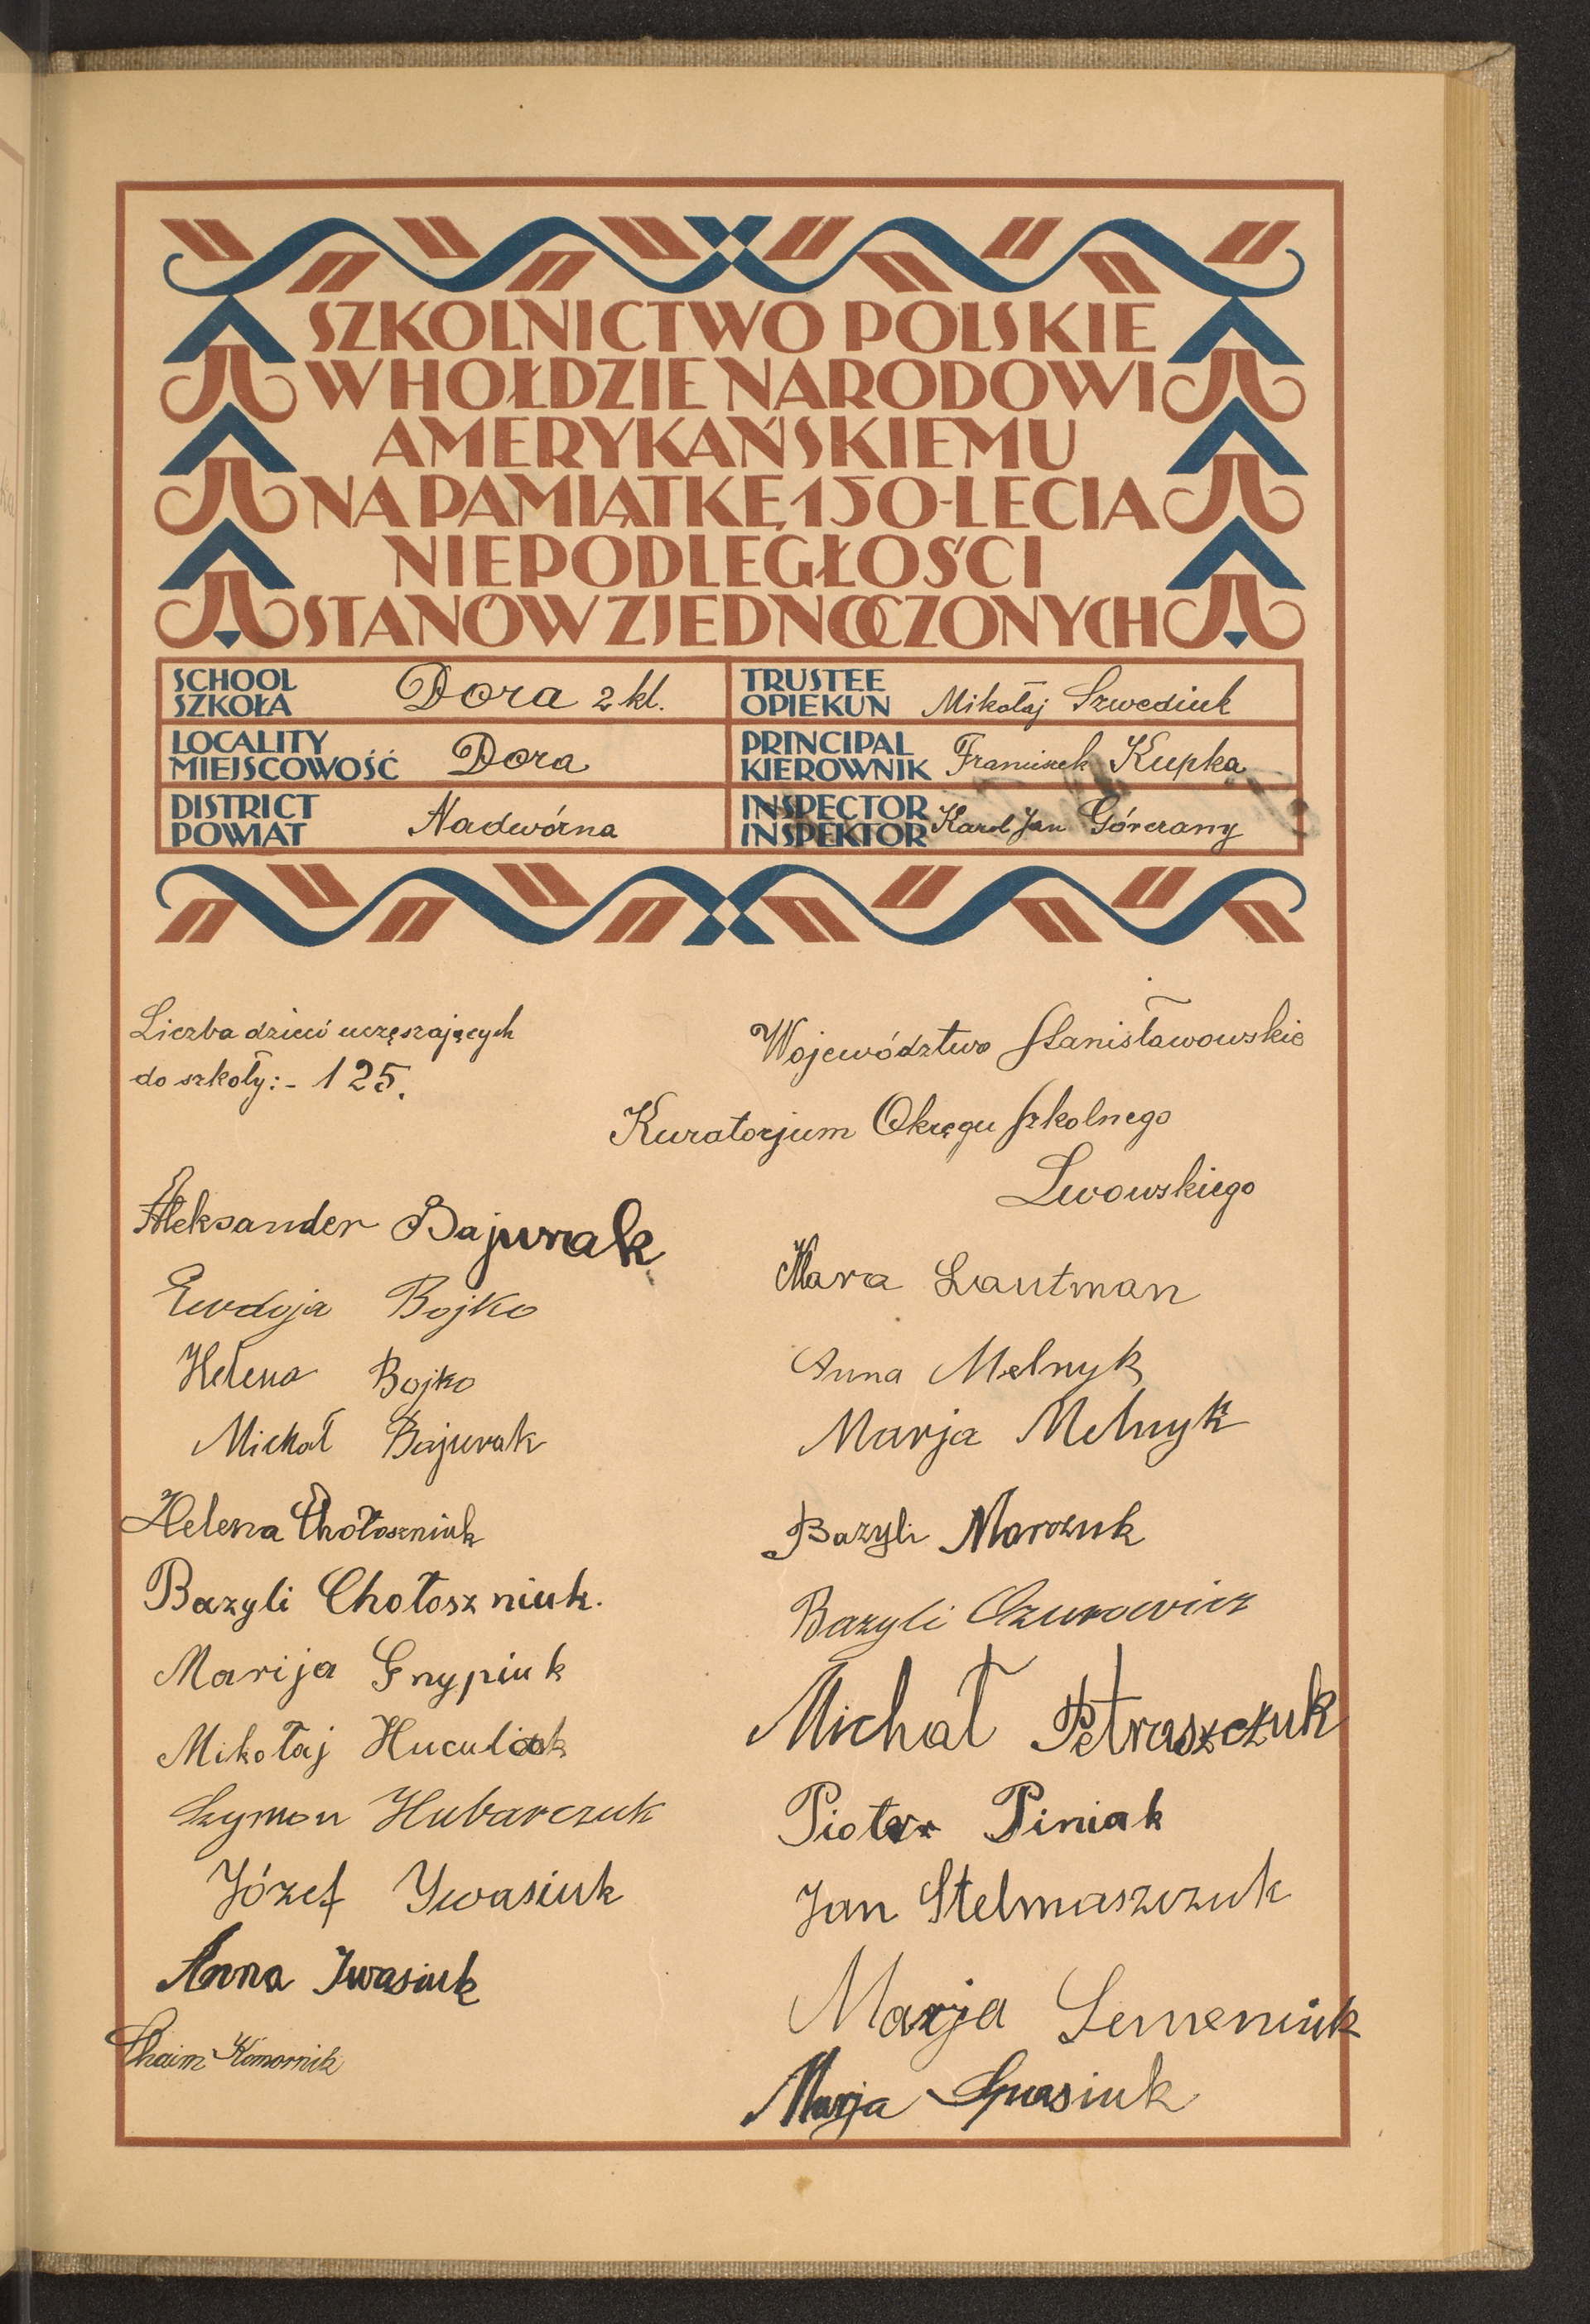 SZKOLNICTWO POLSKIE
W HOŁDZIE NARODOWI
AMERYKAŃSKIEMU
NA PAMIĄTKĘ 150-LECIA
NIEPODLEGŁOŚCI
STANÓW ZJEDNOCZONYCH
SCHOOL
SZKOŁA
Dora 2 kl.
TRUSTEE
OPIEKUN
Mikołaj Szwediuk
LOCALITY
MIEJSCOWOŚĆ
Dora
PRINCIPAL
KIEROWNIK
Franciszek Kupka
DISTRICT
POWIAT
Nadwórna
INSPECTOR
INSPEKTOR
Karol Jan
Liczba dzieci uczęszających
do szkoły:- 125.
Województwo Stanisławowskie
Kuratorjum Okręgu Szkolnego
Lwowskiego
Aleksander Bajurak
Ewdoja Bojko
Helena Bojko
Michał Bajurak
Helena Chołoszniuk
Bazyli Chołoszniuk.
Marija Gnypiuk
Mikołaj Huculak
Szymon Hubarczuk
Józef Ywasiuk
Anna Iwasiuk
Chaim Komornik
Lautman
Anna Melnyk
Marja Melnyk
Bazyli Marczuk
Bazyli Ozurowicz
Michał Petraszczuk
Piotr Piniak
Jan Stelmaszczuk
Marja Semeniuk
Marja Spasiuk